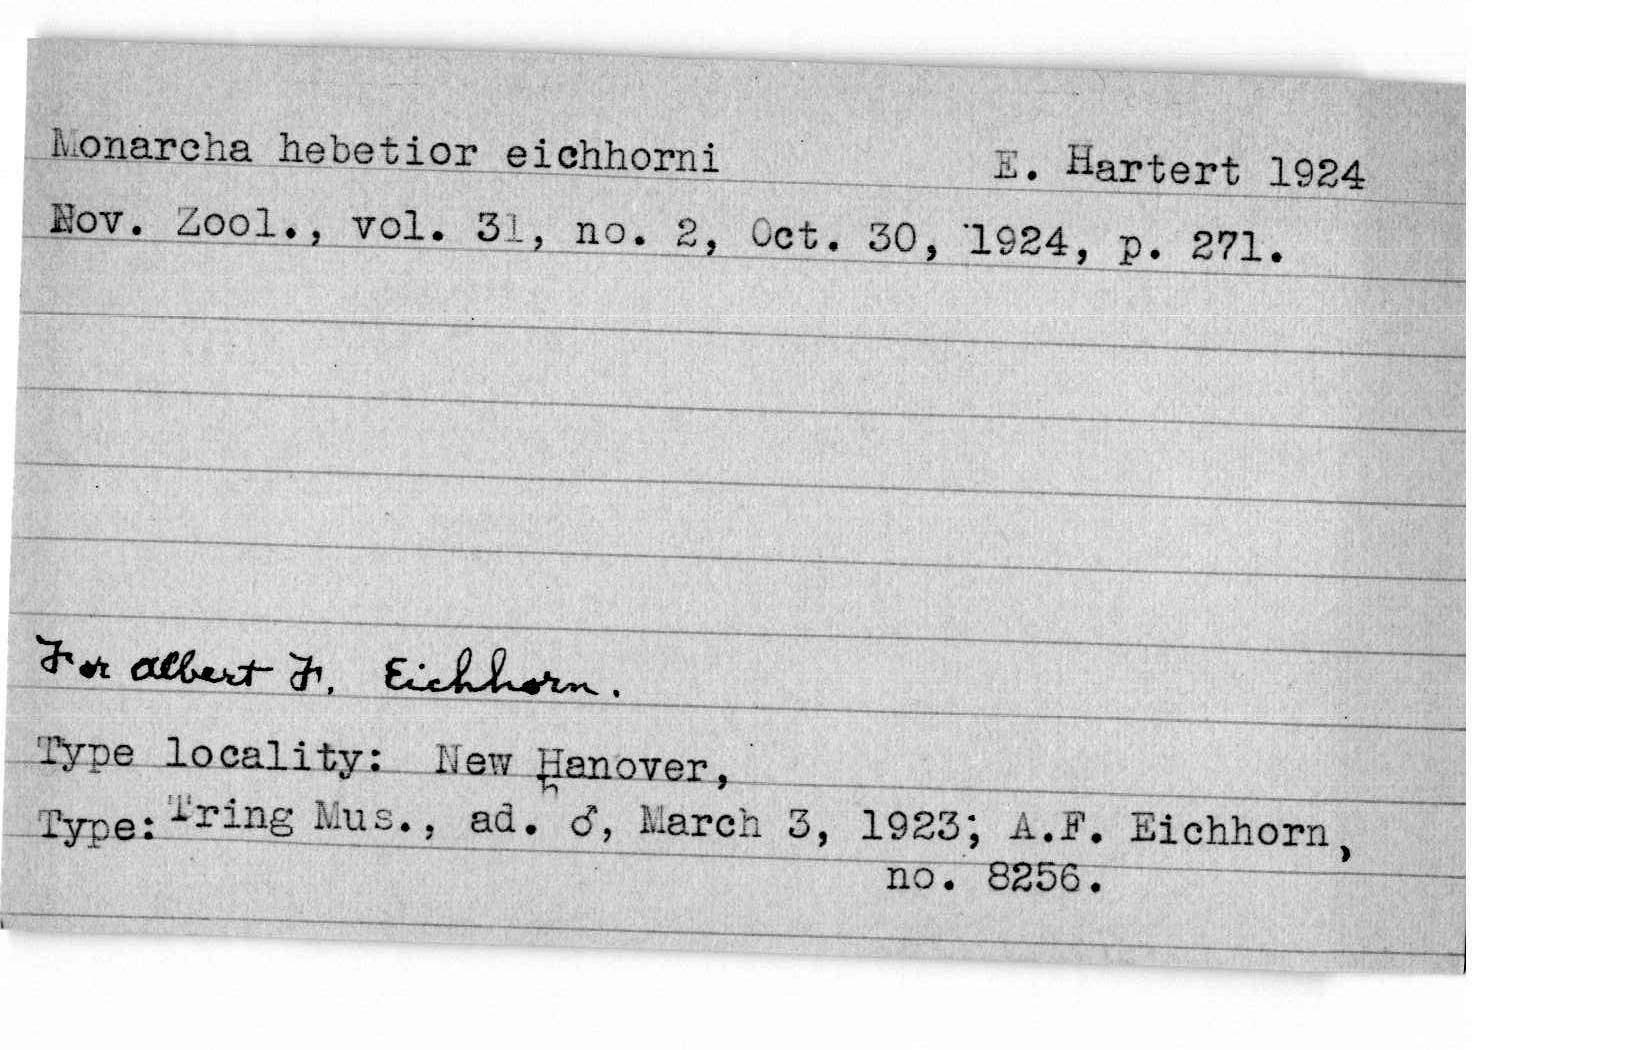 Monarcha hebetior eichhorni E. Hartert 1924
Nov. Zool., vol. 31, no. 2, Oct. 30, 1924, p. 271.
For Albert F. Eichhorn.
Type locality: New Hanover,
Type: Tring Mus., ad. ♂, March 3, 1923; A.F. Eichhorn,
no. 8256.